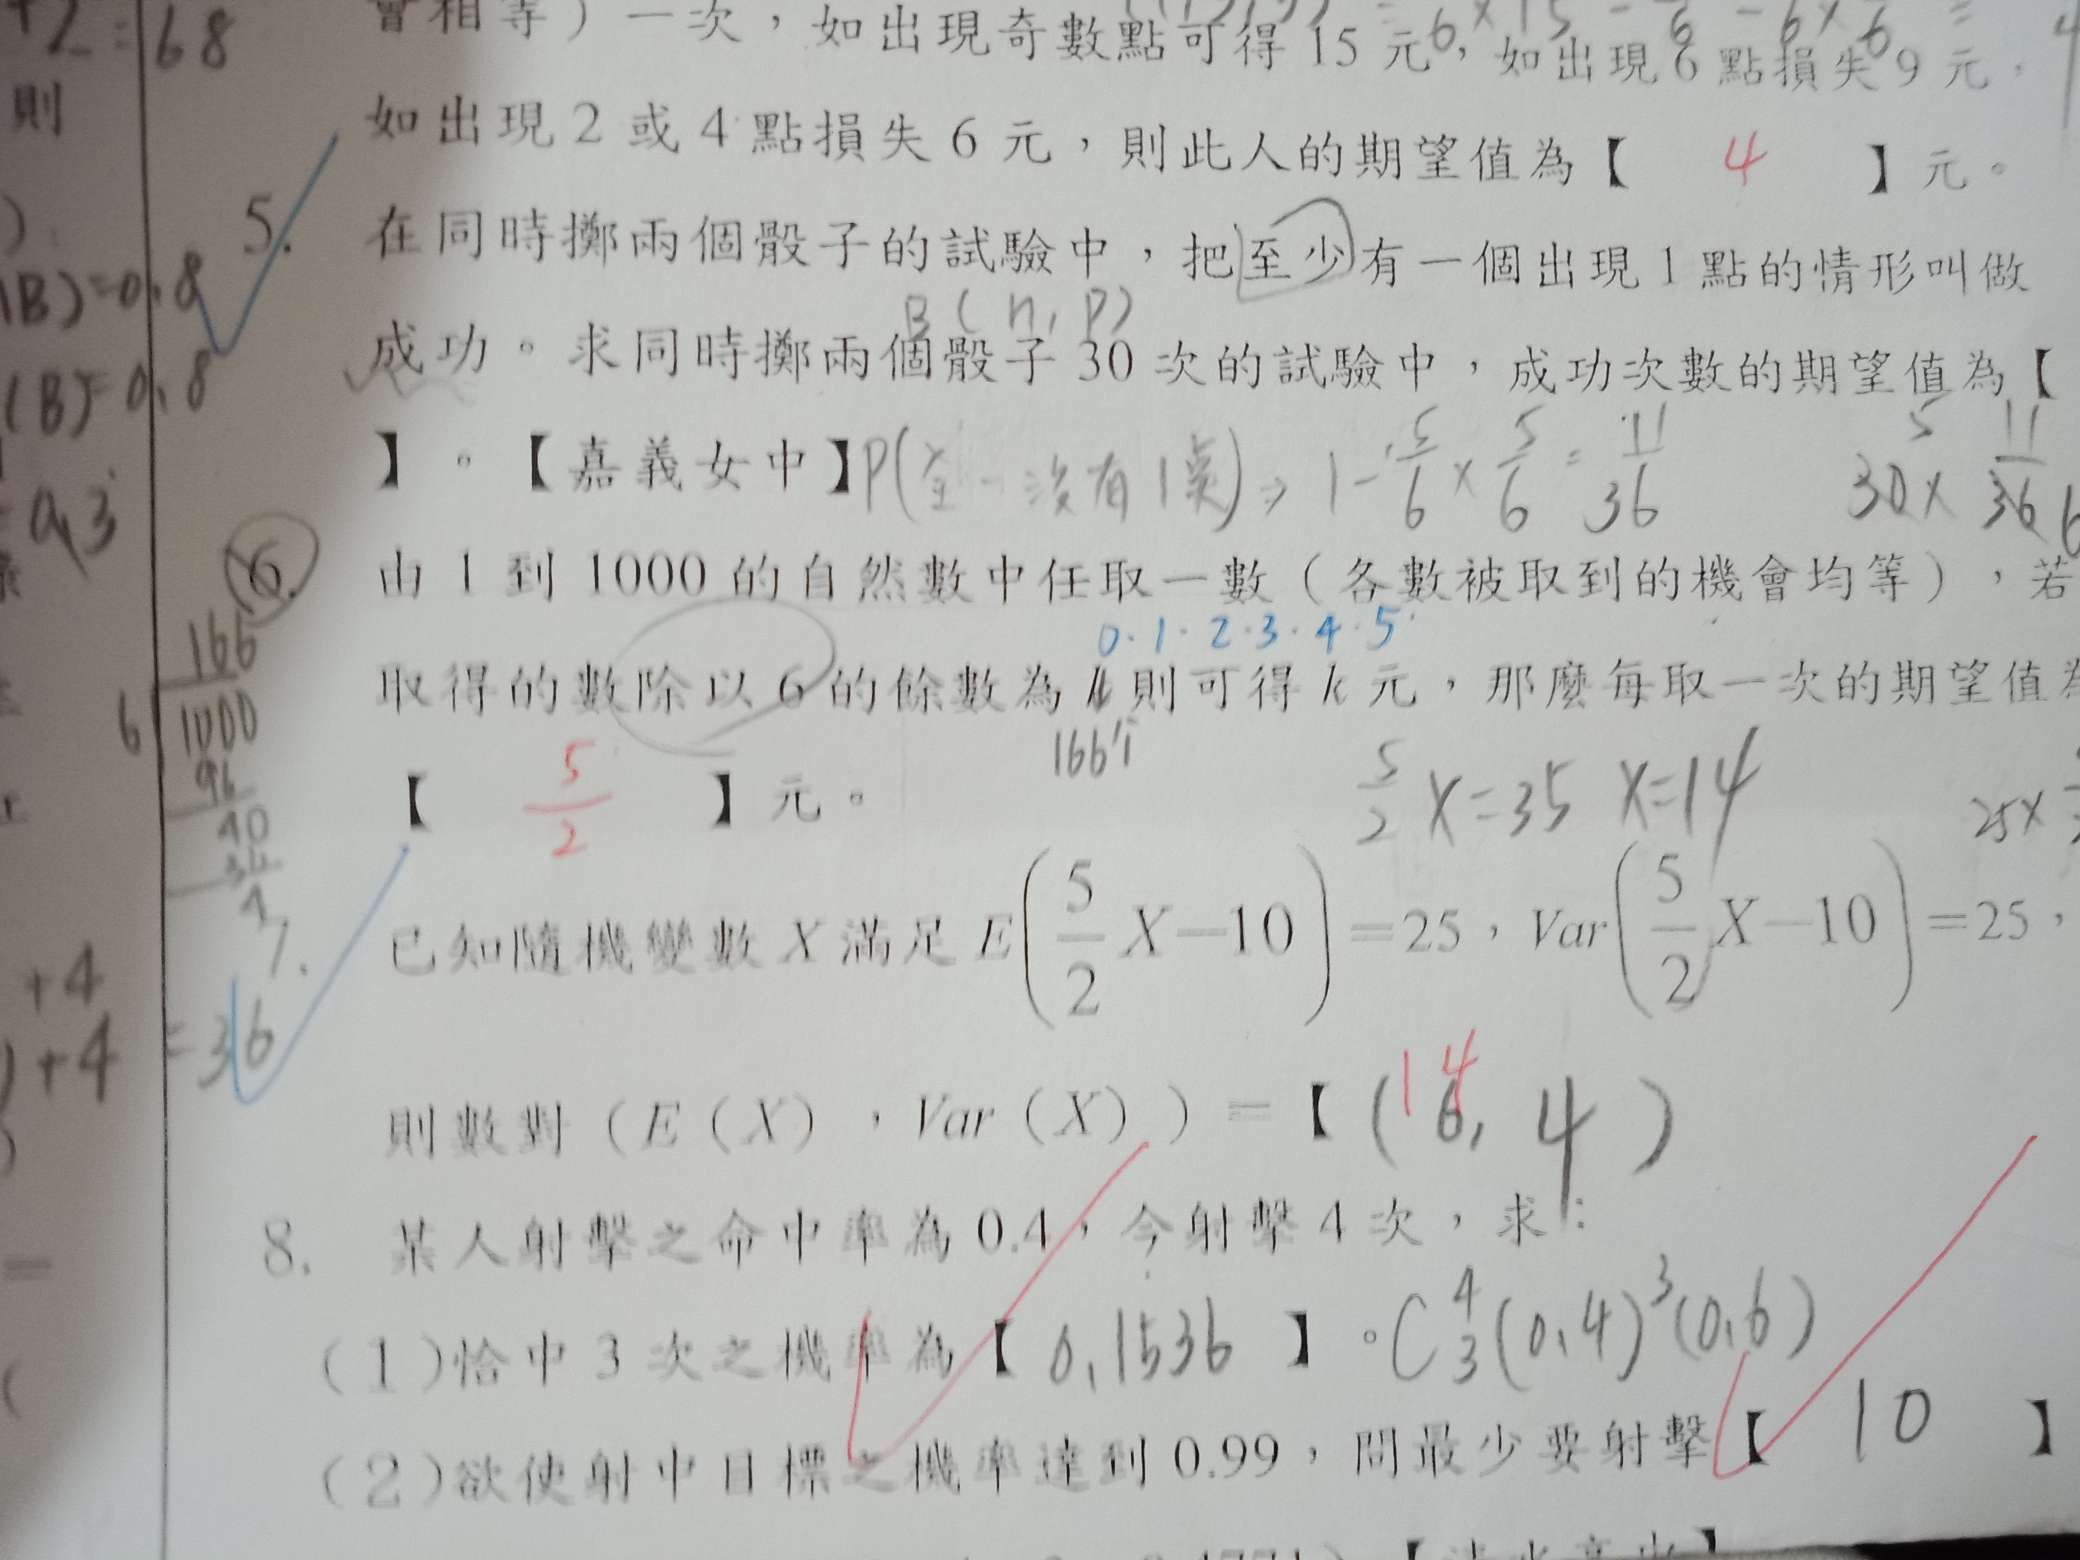 +2=68
會相等）一次，如出現奇數點可得 15 元，如出現 6 點損失 9 元，
則
如出現 2 或 4 點損失 6 元，則此人的期望值為【 4 】元。
5. 在同時擲兩個骰子的試驗中，把至少有一個出現 1 點的情形叫做
B(n, p)
(B)=0.8
成功。求同時擲兩個骰子 30 次的試驗中，成功次數的期望值為【
(B)=0.8
】。【嘉義女中】P( 沒有1點) ⇒ 1-5/6×5/6=11/36 30×11/36
5 6
0.3
6. 由 1 到 1000 的自然數中任取一數（各數被取到的機會均等），若
0.1.2.3.4.5
取得的數除以 6 的餘數為 k 則可得 k 元，那麼每取一次的期望值為
166
6 1000
96
40
36
4
166个
【 5/2 】元。
5/2 X=35 X=14
25×
7. 已知隨機變數 X 滿足 E(5/2 X−10)=25，Var(5/2 X−10)=25，
+4
)+4 =36
則數對（E（X），Var（X））=【 (14, 4)
8. 某人射擊之命中率為 0.4，今射擊 4 次，求：
(1)恰中 3 次之機率為【 0.1536 】。C⁴₃(0.4)³(0.6)
(2)欲使射中目標之機率達到 0.99，問最少要射擊【 10 】